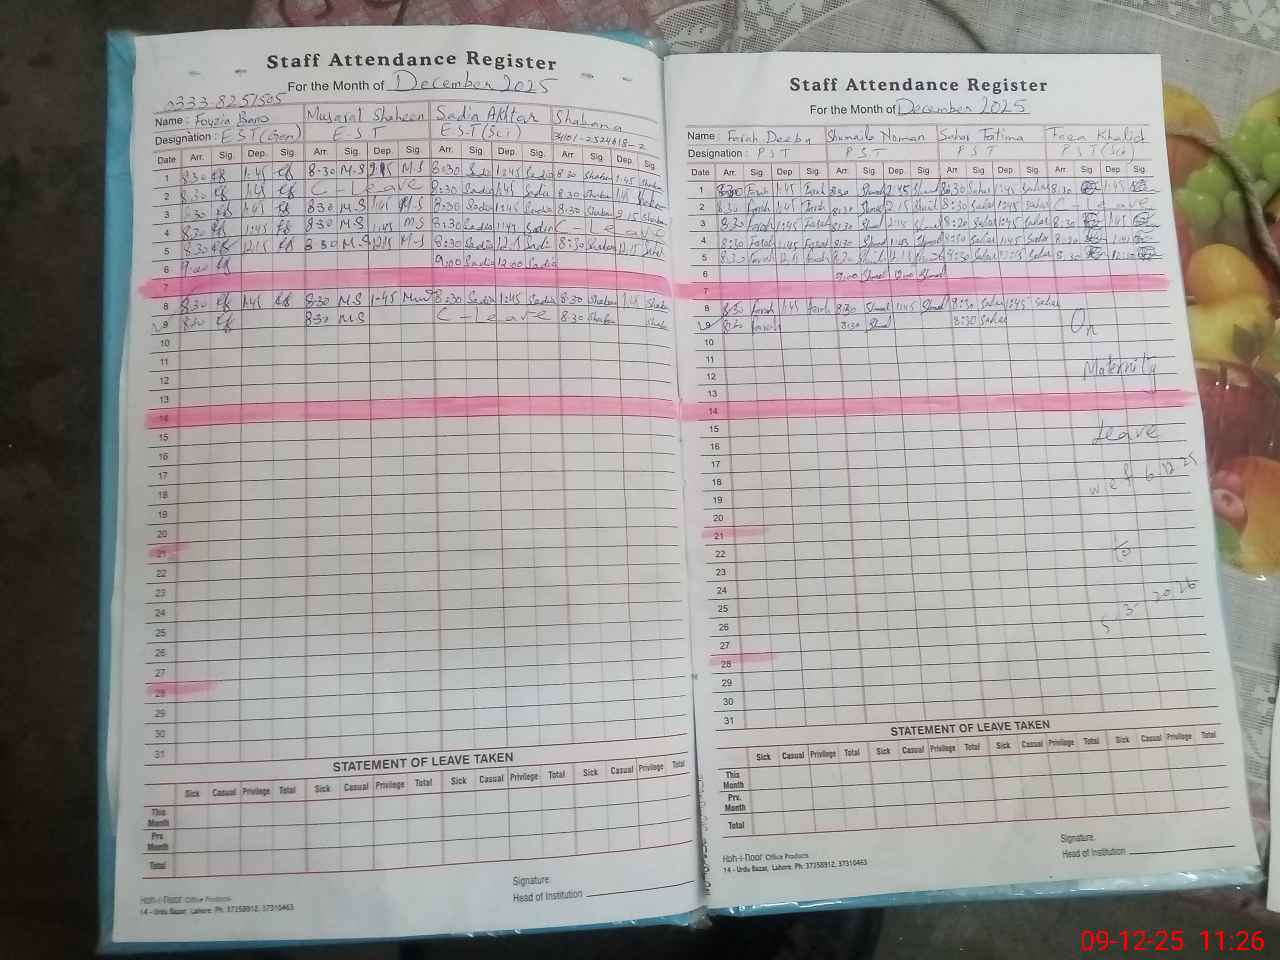 Staff Attendance Register
For the Month of December 2025
0333-8251505
Name : Fouzia Bano Musarat Shaheen Sadia Akhtar Shabana
Designation : E S T (Gen) E-S T E.S.T (Sci) 3401-2524618-2
Date Arr. Sig. Dep. Sig. Arr. Sig. Dep. Sig. Arr. Sig. Dep. Sig. Arr. Sig. Dep. Sig.
1 8:30 1:45 8-30 M-S M-S 8:30 Sadia 12:45 Sadia 8:30 Shaban 1:45 Shaba
2 8:30 1:45 C - Leave 8:30 Sadia 1:45 Sadia 8:30 Shaban 1:45
3 8:30 1:45 8 30 M-S 1:45 M-S 8:30 Sadia 1:45 Sadia 8:30 Shaban 2:15 Shaba
4 8:30 1:45 8 30 M-S 1:45 M-S 8:30 Sadia 1:45 Sadia C - Leave
5 8:30 12:15 8 30 M-S 12:15 M-S 8:30 Sadia Sadia 8:30 Shaban 12:15
6 9:00 9:00 Sadia 12:00 Sadia
7
8 8:30 1:45 8:30 M-S 1:45 8:30 Sadia 1:45 Sadia 8:30 Shaban Shaba
9 8:30 8 30 M-S C - Leave 8:30 Shaban Shaba
10
11
12
13
14
15
16
17
18
19
20
21
22
23
24
25
26
27
28
29
30
31
STATEMENT OF LEAVE TAKEN
Sick Casual Privilege Total Sick Casual Privilege Total Sick Casual Privilege Total Sick Casual Privilege Total
This Month
Prv. Month
Total
Signature.
Head of Institution
Hoh-i-Noor Office Products
14 - Urdu Bazar, Lahore. Ph: 37358912, 37310463
Staff Attendance Register
For the Month of December 2025
Name : Farah Deeba Shumaila Noman Sahar Fatima Faza Khalid
Designation : P S T P. S. T P S T P S T (Sci)
Date Arr. Sig. Dep. Sig. Arr. Sig. Dep. Sig. Arr. Sig. Dep Sig. Arr. Sig. Dep Sig.
1 8:30 Farah 1:45 Farah 8:30 2:45 8:30 Sahar 1:45 Sahar 8:30 1:45
2 8:30 Farah 1:45 Farah 8:30 2:15 8:30 Sahar 1:45 Sahar C - Leave
3 8:30 Farah 1:45 Farah 8:30 2:15 8:20 Sahar 1:45 Sahar 8:30 1:45
4 8:30 Farah 1:45 Farah 8:30 1:45 8:30 Sahar 1:45 Sahar 8:30 1:45
5 8:30 Farah 12:15 Farah 8:30 8:30 Sahar Sahar 8:30
6 9:00 12:00
7
8 8:30 Farah 1:45 Farah 8:30 1:45 8:30 Sahar 1:45 Sahar
9 8:30 Farah 8:30 8:30 Sahar On
10
11
12 Maternity
13
14
15 Leave
16
17
18 w e f 6 12 25
19
20
21
22 to
23
24
25 5 3 2026
26
27
28
29
30
31
STATEMENT OF LEAVE TAKEN
Sick Casual Privilege Total Sick Casual Privilege Total Sick Casual Privilege Total Sick Casual Privilege Total
This Month
Prv. Month
Total
Signature.
Head of Institution
Hoh-i-Noor Office Products
14 - Urdu Bazar, Lahore. Ph: 37358912, 37310463
09-12-25 11:26